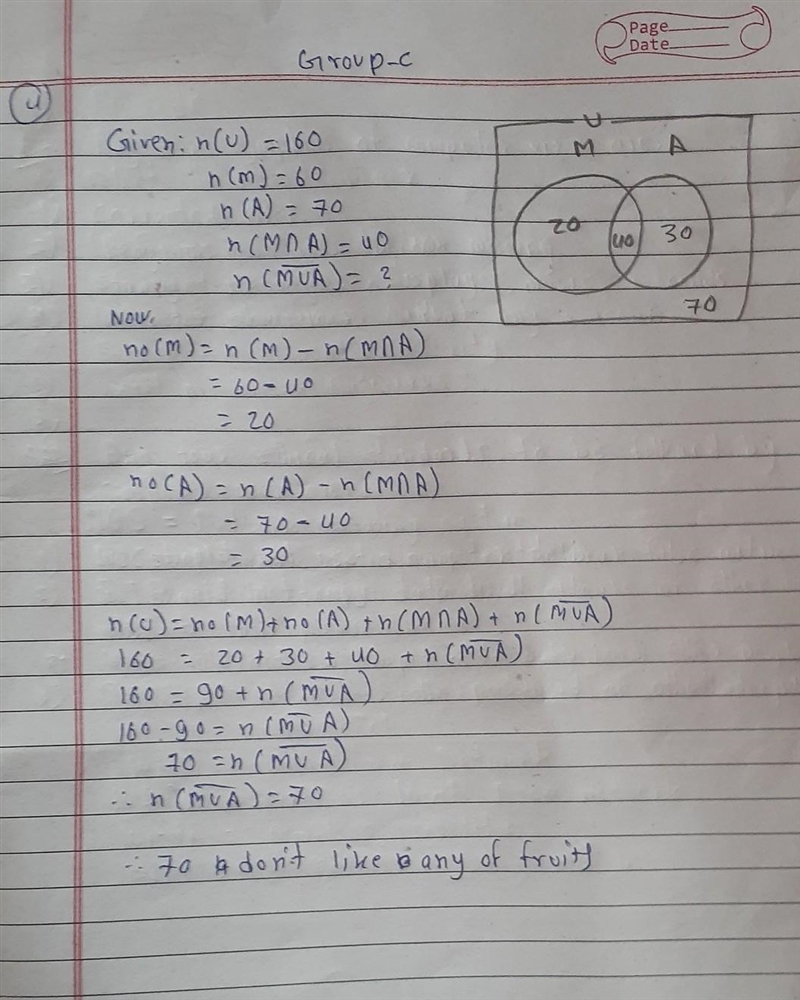 Page
Date
Group-C
4
Given: n(U) = 160
n(m) = 60
n(A) = 70
n(M∩A) = 40
n(M̅U̅A̅) = ?
U
M A
20 40 30
70
Now,
no(M) = n(M) - n(M∩A)
= 60 - 40
= 20
no(A) = n(A) - n(M∩A)
= 70 - 40
= 30
n(U) = no(M) + no(A) + n(M∩A) + n(M̅U̅A̅)
160 = 20 + 30 + 40 + n(M̅U̅A̅)
160 = 90 + n(M̅U̅A̅)
160 - 90 = n(M̅U̅A̅)
70 = n(M̅U̅A̅)
∴ n(M̅U̅A̅) = 70
∴ 70 don't like any of fruits